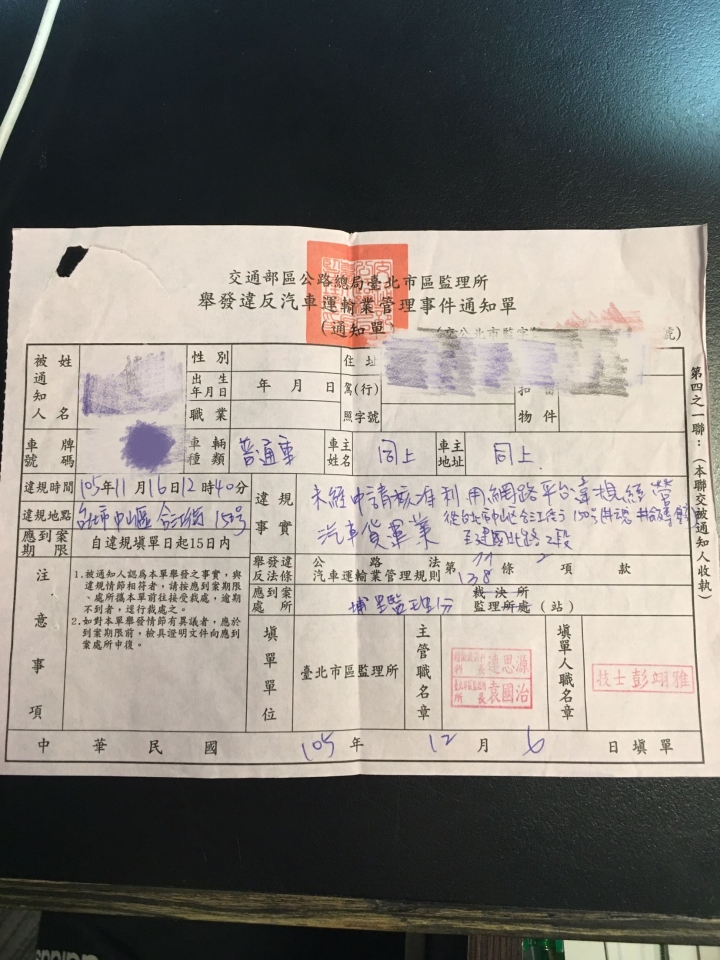 交通部區公路總局臺北市區監理所
舉發違反汽車運輸業管理事件通知單
(通知單)
號)
第四之一聯：(本聯交被通知人收執)
被通知人 姓名
性別
出生年月日 年 月 日
職業
住址
駕(行)照字號
扣留物件
車牌號碼
車輛種類 普通車
車主姓名 同上
車主地址 同上.
違規時間 105年11月16日12時40分
違規地點 台北市中山區 合江街 150號
應到案期限 自違規填單日起15日內
違規事實 未經申請核准利用網路平台違規經營
汽車貨運業 從台北市中山區合江街 150號
至建國北路2段
舉發違反法條 公路法 汽車運輸業管理規則 第 77 138 條 2 項 款
應到案處所 埔里監理分 裁決所 監理所處(站)
注意事項
1.被通知人認為本單舉發之事實，與
違規情節相符者，請按應到案期限
、處所攜本單前往接受裁處，逾期
不到者，逕行裁處之。
2.如對本單舉發情節有異議者，應於
到案期限前，檢具證明文件向應到
案處所申復。
填單單位 臺北市區監理所
主管職名章
科長 連思源
所長 袁國治
填單人職名章
技士彭翊雅
中華民國 105 年 12 月 6 日填單